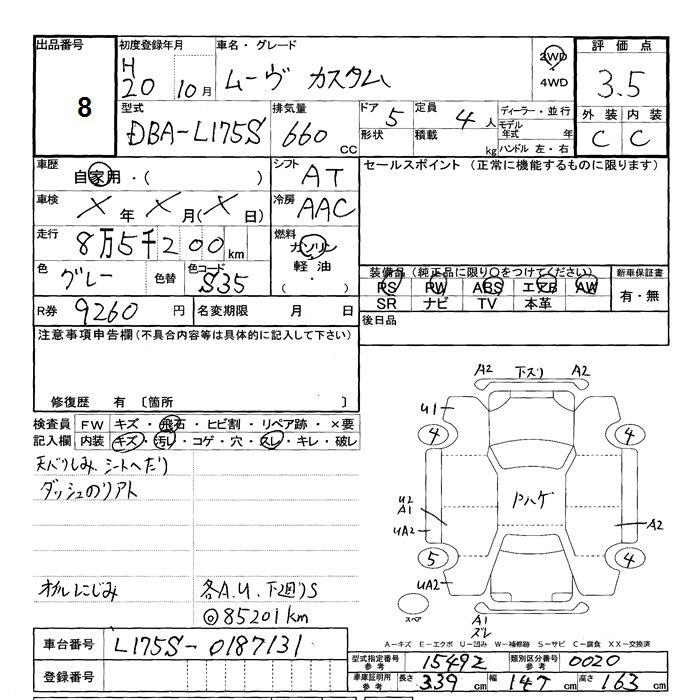 出品番号
8
初度登録年月
H20 10月
車名・グレード
ムーヴ カスタム
2WD
4WD
評価点
3.5
外装 内装
C C
型式
DBA-L175S
排気量
660 CC
ドア 5
形状
定員 4人
積載 kg
ディーラー・並行
モデル年式 年
ハンドル 左・右
車歴
自家用・( )
シフト
AT
セールスポイント (正常に機能するものに限ります)
車検
X年 X月(X日)
冷房
AAC
走行
8万5千200km
燃料
ガソリン
軽油
・
( )
色
グレー
色替
色コード
S35
装備品 (純正品に限り〇をつけてください)
PS PW ABS エアB AW
SR ナビ TV 本革
新車保証書
有・無
R券 9260円
名変期限 月 日
後日品
注意事項申告欄(不具合内容等は具体的に記入して下さい)
修復歴 有 〔箇所 〕
検査員
記入欄
FW キズ・飛石・ヒビ割・リペア跡・×要
内装 キズ・汚レ・コゲ・穴・スレ・キレ・破レ
天バリしみ、シートへたり
ダッシュのリアト
オイルにじみ
各A.U、下廻りS
◎85201km
A2 下スリ A2
U1
4 4
ドハゲ
U2
A1
UA2
A2
5 4
UA2
スペア
A1
スレ
A-キズ E-エクボ U-凹み W-補修跡 S-サビ C-腐食 XX-交換済
車台番号
L175S-0187131
登録番号
型式指定番号 参考 15492
類別区分番号 参考 0020
車庫証明用 参考 長さ 339cm 幅 147cm 高さ 163cm